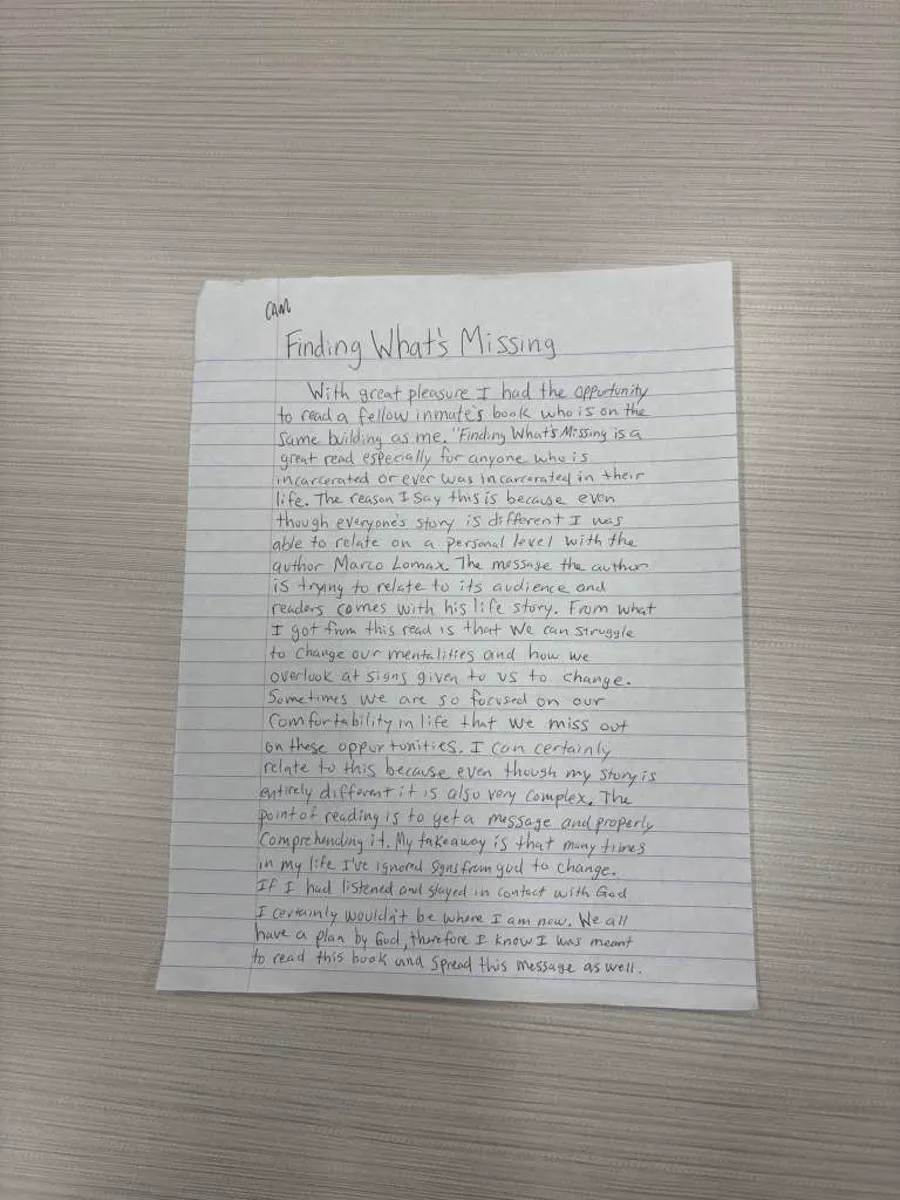 CAM
Finding What's Missing
With great pleasure I had the oppurtunity
to read a fellow inmate's book who is on the
same building as me. "Finding What's Missing is a
great read especially for anyone who is
incarcerated or ever was incarcerated in their
life. The reason I say this is because even
though everyone's story is different I was
able to relate on a personal level with the
author Marco Lomax. The message the author
is trying to relate to its audience and
readers comes with his life story. From what
I got from this read is that we can struggle
to change our mentalities and how we
overlook at signs given to us to change.
Sometimes we are so focused on our
comfortability in life that we miss out
on these oppurtunities. I can certainly
relate to this because even though my story is
entirely different it is also very complex. The
point of reading is to get a message and properly
comprehending it. My takeaway is that many times
in my life I've ignored signs from god to change.
If I had listened and stayed in contact with God
I certainly wouldn't be where I am now. We all
have a plan by God, therefore I know I was meant
to read this book and spread this message as well.